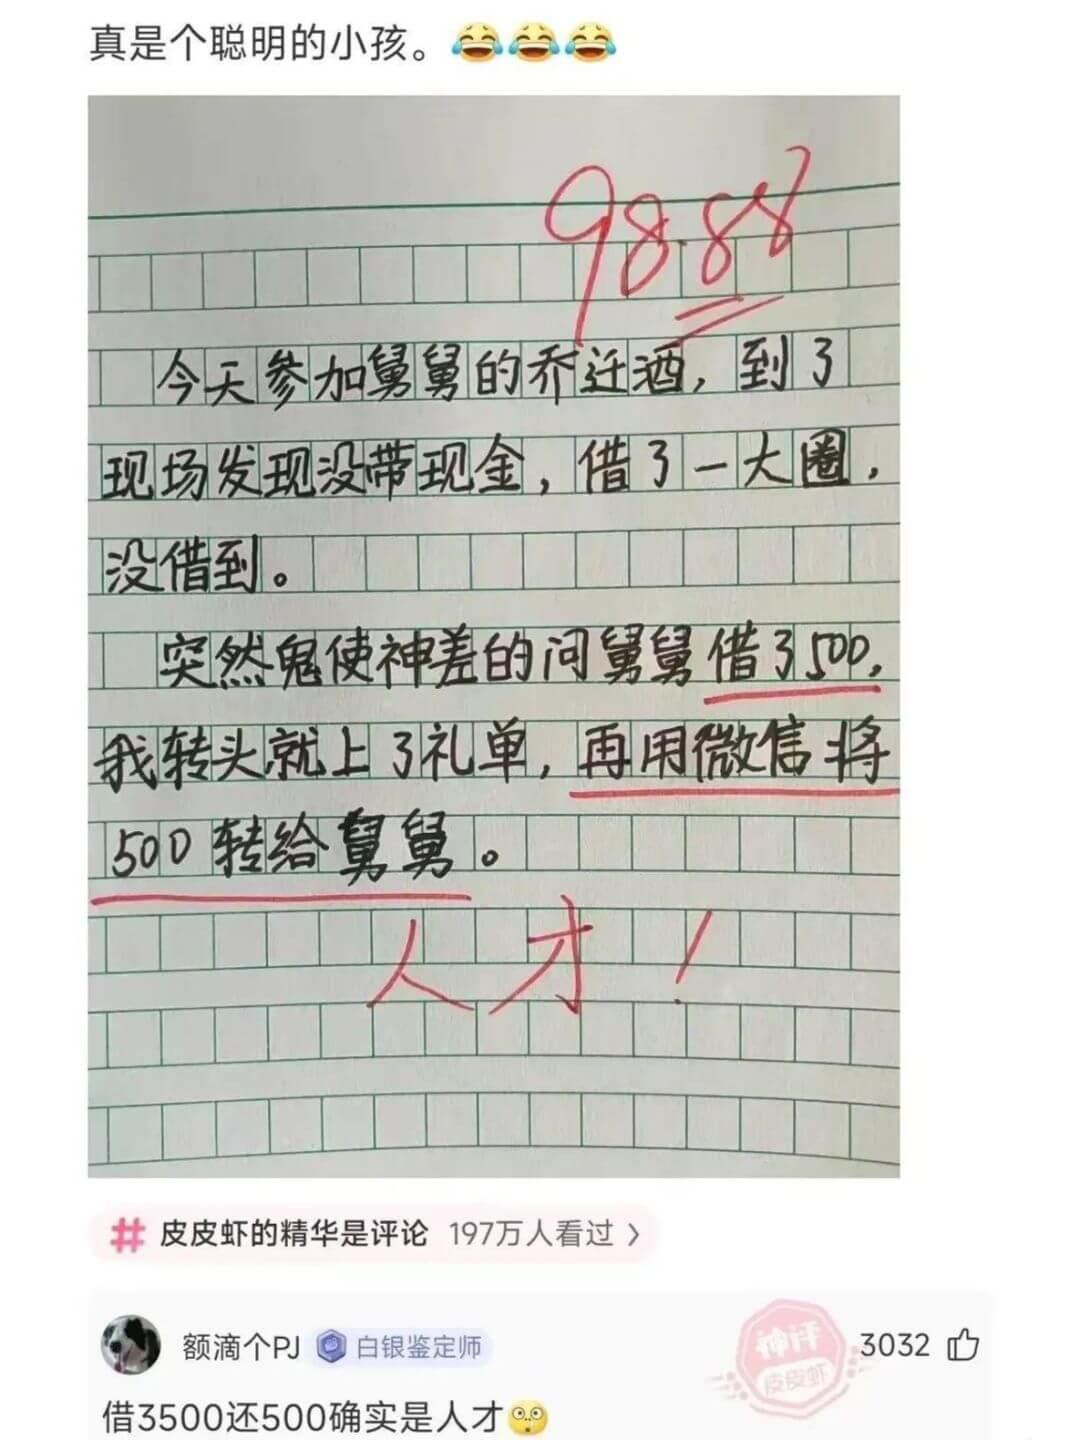 真是个聪明的小孩。😂😂😂
98.88
今天参加舅舅的乔迁酒，到了
现场发现没带现金，借了一大圈，
没借到。
突然鬼使神差的问舅舅借了500，
我转头就上了礼单，再用微信将
500转给舅舅。
人才！
# 皮皮虾的精华是评论 197万人看过 >
额滴个PJ 白银鉴定师 神评 皮皮虾 3032
借3500还500确实是人才🙄